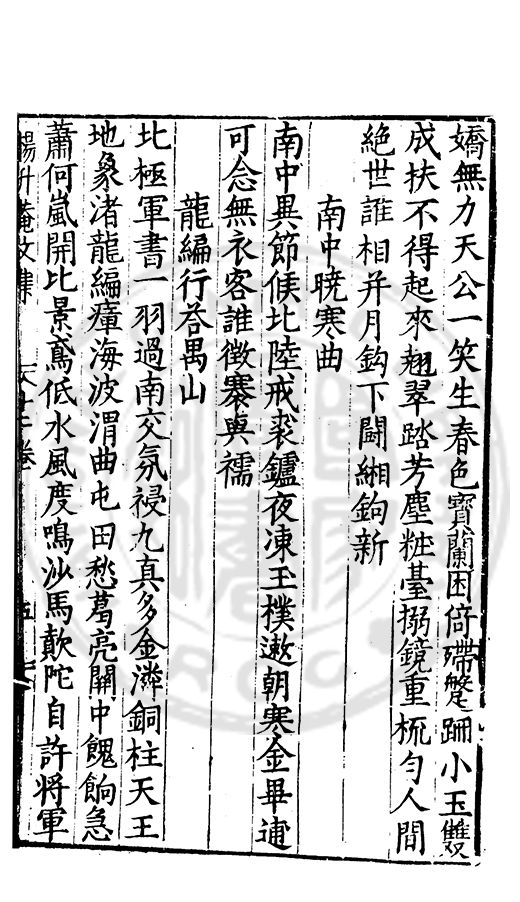 嬌無力天公一笑生春色寶蘭困倚殢蹩跚小玉雙
成扶不得起來翹翠踏芳塵粧臺搦鏡重梳勻人間
絕世誰相并月鈎下鬭緗鉤新
南中曉寒曲
南中異節候北陸戒裘鑪夜凍玉樸遬朝寒金畢逋
可念無衣客誰徵褰與襦
龍編行荅禺山
北極軍書一羽過南交氛祲九真多金潾銅柱天王
地象渚龍編瘴海波渭曲屯田愁葛亮關中餽餉急
蕭何嵐開比景鳶低水風度鳴沙馬歕陀自許將軍
楊升菴文集 卷